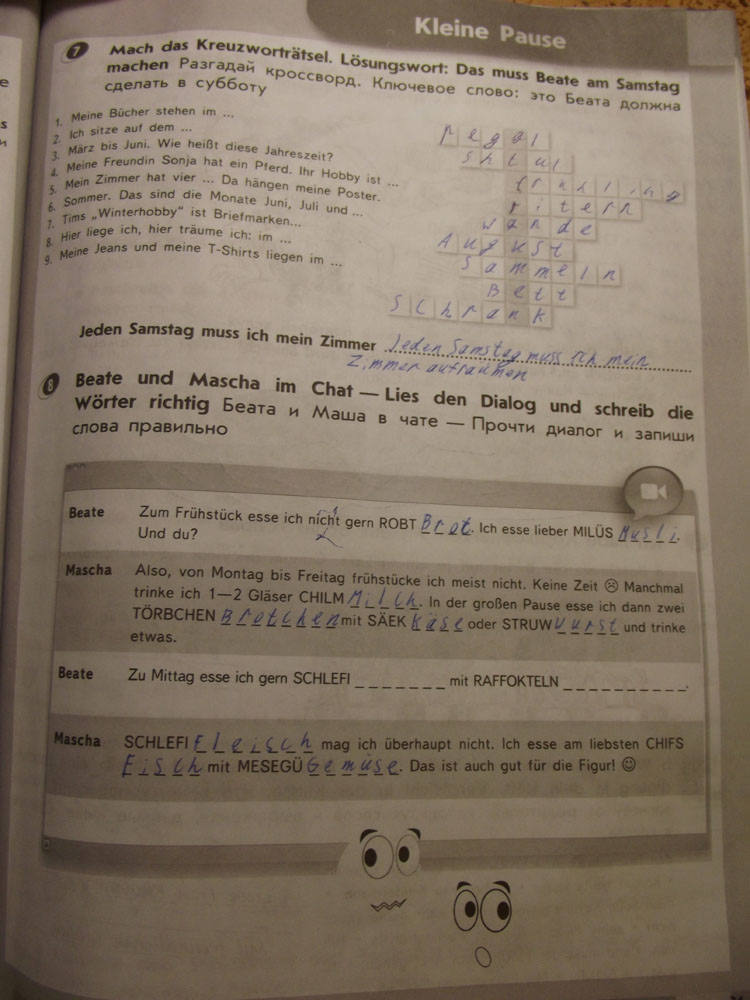 Kleine Pause
7 Mach das Kreuzworträtsel. Lösungswort: Das muss Beate am Samstag
machen Разгадай кроссворд. Ключевое слово: это Беата должна
сделать в субботу
1. Meine Bücher stehen im ...
2. Ich sitze auf dem ...
3. März bis Juni. Wie heißt diese Jahreszeit?
4. Meine Freundin Sonja hat ein Pferd. Ihr Hobby ist ...
5. Mein Zimmer hat vier ... Da hängen meine Poster.
6. Sommer. Das sind die Monate Juni, Juli und ...
7. Tims „Winterhobby" ist Briefmarken...
8. Hier liege ich, hier träume ich: im ...
9. Meine Jeans und meine T-Shirts liegen im ...
regal
shtul
fruhling
ritern
wande
August
Sammeln
Bett
Schrank
Jeden Samstag muss ich mein Zimmer Jeden Samstag muss ich mein
Zimmer aufraumen
8 Beate und Mascha im Chat — Lies den Dialog und schreib die
Wörter richtig Беата и Маша в чате — Прочти диалог и запиши
слова правильно
Beate Zum Frühstück esse ich nicht gern ROBT Brot. Ich esse lieber MILÜS Musli.
Und du?
Mascha Also, von Montag bis Freitag frühstücke ich meist nicht. Keine Zeit ☹ Manchmal
trinke ich 1—2 Gläser CHILM Milch. In der großen Pause esse ich dann zwei
TÖRBCHEN Brotchen mit SÄEK Käse oder STRUW Vurst und trinke
etwas.
Beate Zu Mittag esse ich gern SCHLEFI _ _ _ _ _ _ _ mit RAFFOKTELN _ _ _ _ _ _ _ _ _ _.
Mascha SCHLEFI Fleisch mag ich überhaupt nicht. Ich esse am liebsten CHIFS
Fisch mit MESEGÜ Gemüse. Das ist auch gut für die Figur! ☺